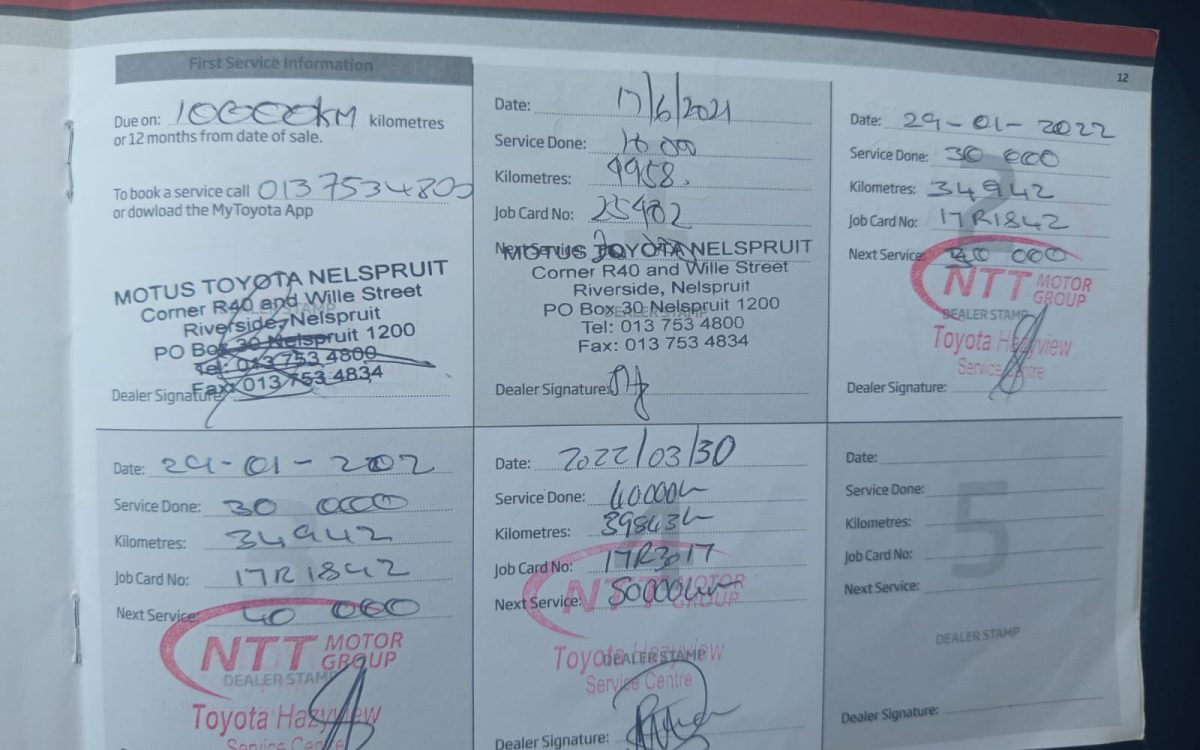 First Service Information
Due on: 10000KM kilometres
or 12 months from date of sale.
To book a service call 013 753 4800
or dowload the MyToyota App
MOTUS TOYOTA NELSPRUIT
Corner R40 and Wille Street
Riverside, Nelspruit
PO Box 30 Nelspruit 1200
Tel: 013 753 4800
Fax: 013 753 4834
Dealer Signature:
Date: 17/6/2021
Service Done: 10 000
Kilometres: 9958.
Job Card No: 25482
Next Service:
MOTUS TOYOTA NELSPRUIT
Corner R40 and Wille Street
Riverside, Nelspruit
PO Box 30 Nelspruit 1200
Tel: 013 753 4800
Fax: 013 753 4834
Dealer Signature:
12
Date: 29-01-2022
Service Done: 30 000
Kilometres: 34942
Job Card No: 17R1842
Next Service: 40 000
NTT MOTOR
GROUP
DEALER STAMP
Toyota Hazyview
Service Centre
Dealer Signature:
Date: 29-01-202
Service Done: 30 000
Kilometres: 34942
Job Card No: 17R1842
Next Service: 40 000
NTT MOTOR
GROUP
DEALER STAMP
Toyota Hazyview
Service Centre
Date: 2022/03/30
Service Done: 40000
Kilometres: 39843
Job Card No: 17R3017
Next Service: 50000
NTT MOTOR
GROUP
DEALER STAMP
Toyota Hazyview
Service Centre
Dealer Signature:
5
Date:
Service Done:
Kilometres:
Job Card No:
Next Service:
DEALER STAMP
Dealer Signature: